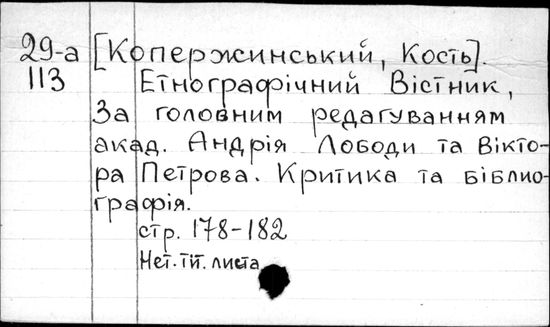 29-а [Копержинський, Кость].
113 Етнографічний Вістник,
За головним редагуванням
акад. Андрія Лободи та Вікто-
ра Петрова. Критика та бібліо-
графія.
стр. 178-182
Нет. тит. листа